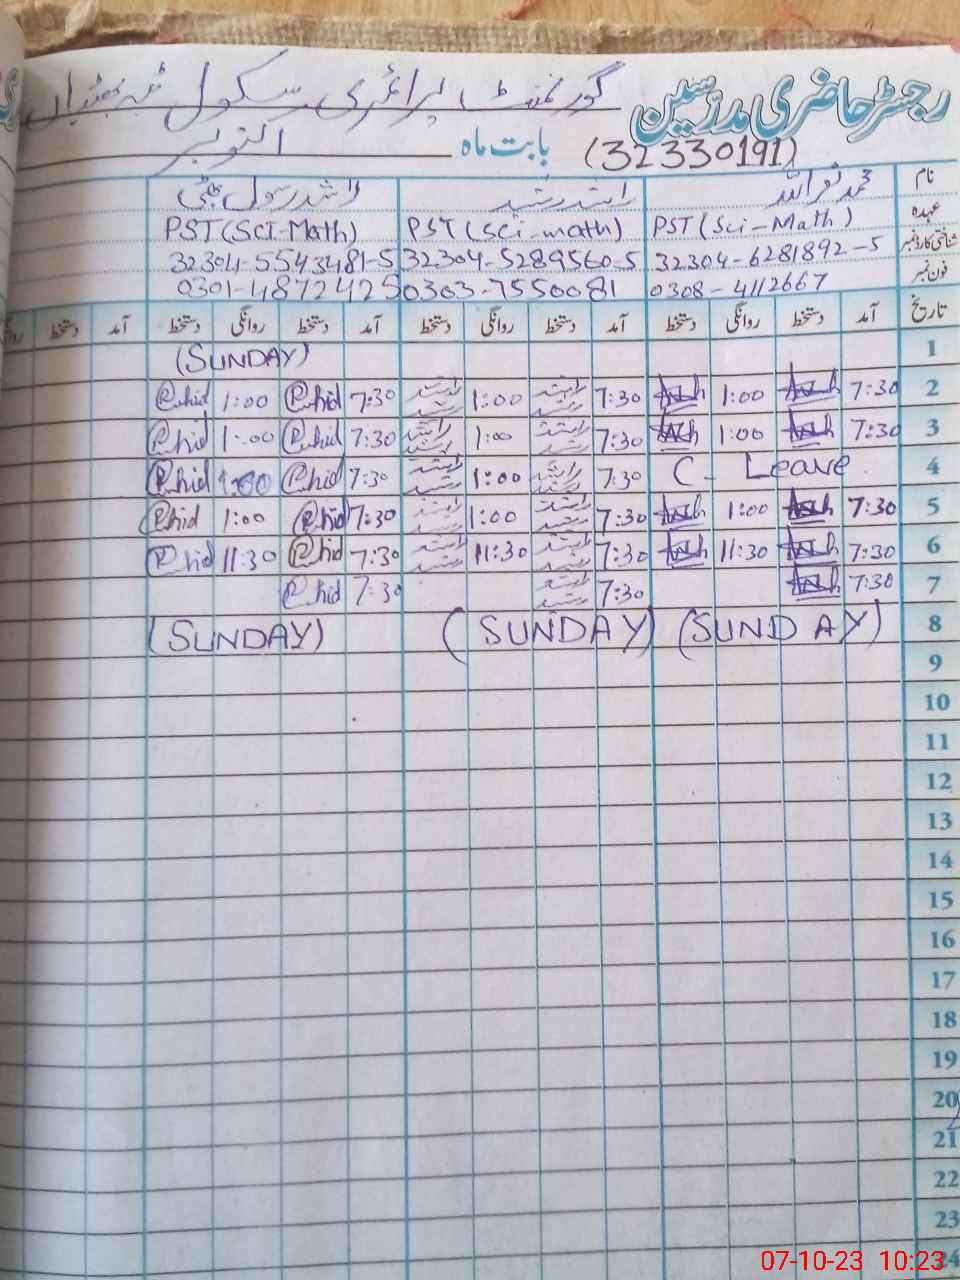 رجسٹر حاضری مدرسین گورنمنٹ پرائمری سکول
(32330191) بابت ماہ اکتوبر
نام محمد نصراللہ راشد رشید راشد رسول بھٹی
عہدہ PST (Sci-Math) PST (Sci-math) PST (SCI-Math)
شناختی کارڈ نمبر 32304-6281892-5 32304-5289560-5 32304-5543481-5
فون نمبر 0308-4112667 0303-7550081 0301-4872425
تاریخ آمد دستخط روانگی دستخط آمد دستخط روانگی دستخط آمد دستخط روانگی دستخط آمد دستخط
1 (SUNDAY)
2 7:30 1:00 7:30 راشد رشید 1:00 راشد رشید 7:30 1:00
3 7:30 1:00 7:30 راشد رشید 1:00 راشد رشید 7:30 1:00
4 C- Leave 7:30 راشد رشید 1:00 راشد رشید 7:30 1:00
5 7:30 1:00 7:30 راشد رشید 1:00 راشد رشید 7:30 1:00
6 7:30 11:30 7:30 راشد رشید 11:30 راشد رشید 7:30 11:30
7 7:30 7:30 راشد رشید 7:30
8 (SUNDAY) (SUNDAY) (SUNDAY)
9
10
11
12
13
14
15
16
17
18
19
20
21
22
23
24
07-10-23 10:23